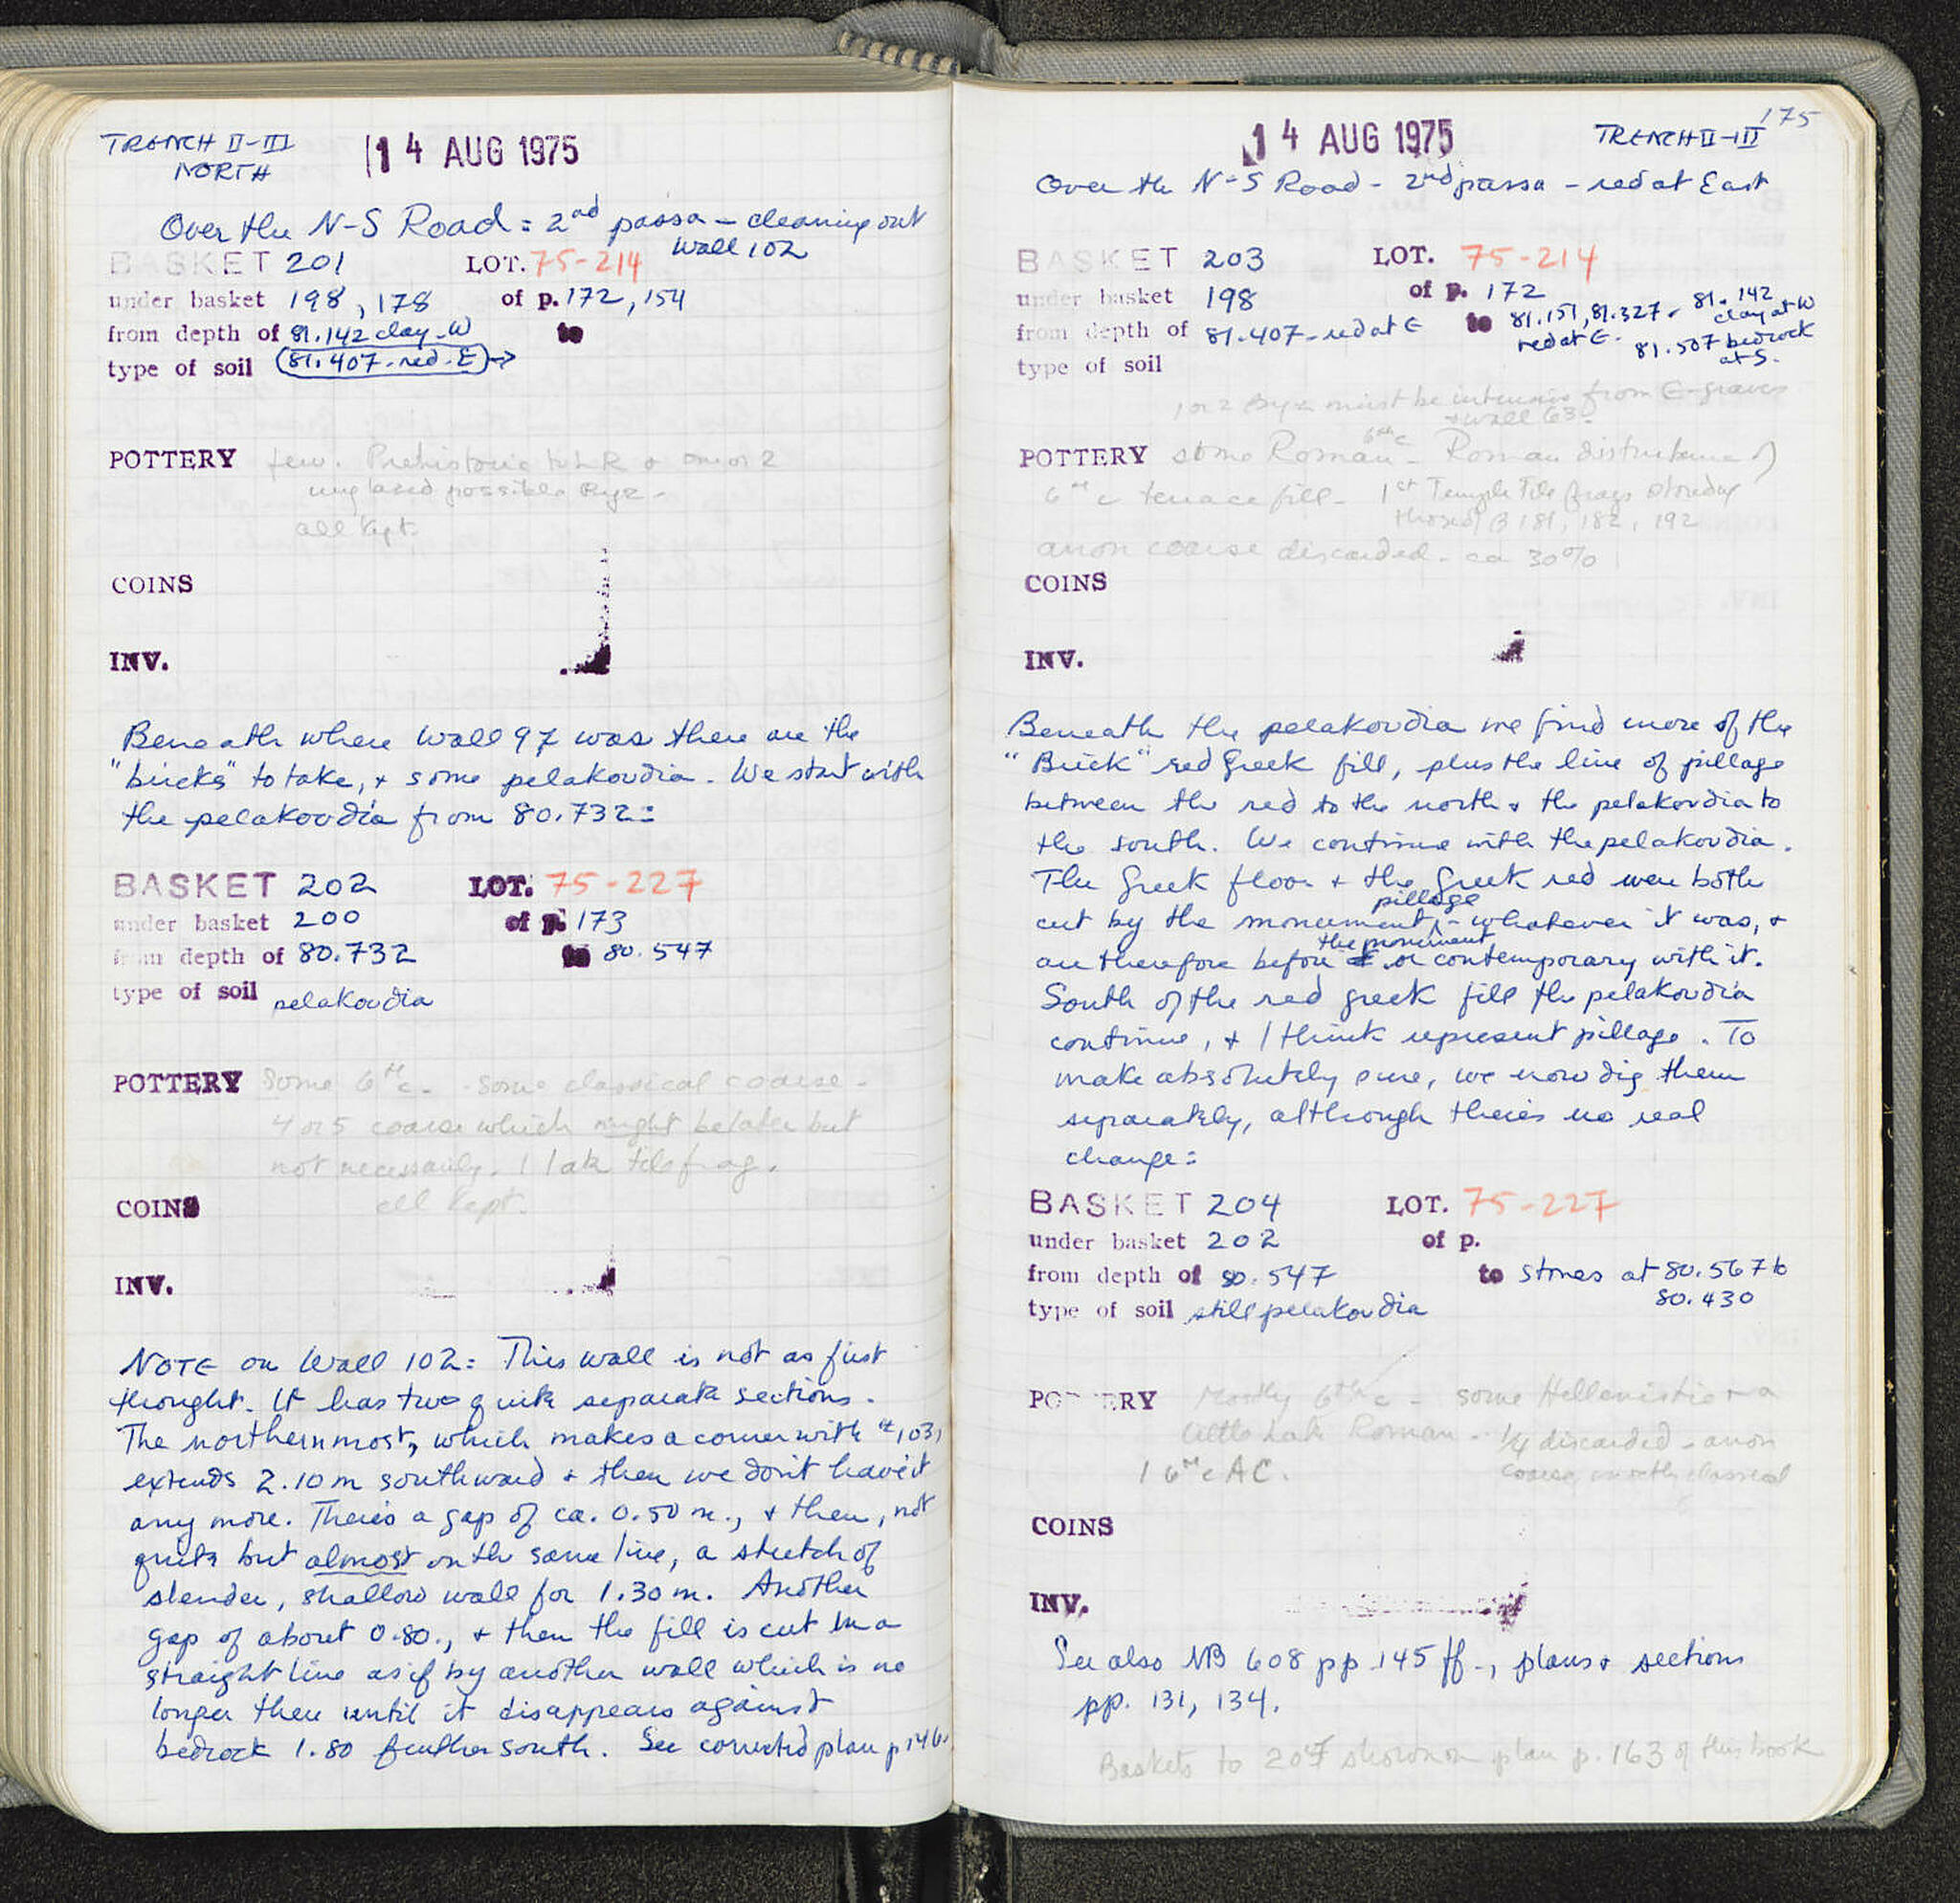 TRENCH II-III
NORTH
14 AUG 1975
Over the N-S Road = 2nd passa - cleaning out
wall 102
BASKET 201 LOT. 75-214
under basket 198, 178 of p. 172, 154
from depth of 81.142 clay-W to
type of soil 81.407-red-E →
POTTERY few. Prehistoric to LR + one or 2
unglazed possible Byz-
all kept.
COINS
INV.
Beneath where Wall 97 was there are the
"bricks" to take, + some pelakoudia. We start with
the pelakoudia from 80.732:
BASKET 202 LOT. 75-227
under basket 200 of p. 173
from depth of 80.732 to 80.547
type of soil pelakoudia
POTTERY Some 6th c. - some classical coarse -
4 or 5 coarse which might be later but
not necessarily. 1 late tile frag.
all kept.
COINS
INV.
NOTE on Wall 102: This wall is not as first
thought. It has two quite separate sections.
The northernmost, which makes a corner with #103,
extends 2.10 m southward + then we don't have it
any more. There's a gap of ca. 0.50 m., + then, not
quite but almost on the same line, a stretch of
slender, shallow wall for 1.30 m. Another
gap of about 0.80., + then the fill is cut in a
straight line as if by another wall which is no
longer there until it disappears against
bedrock 1.80 further south. See corrected plan p 146.
175
14 AUG 1975 TRENCH II-III
Over the N-S Road - 2nd passa - red at East
BASKET 203 LOT. 75-214
under basket 198 of p. 172
from depth of 81.407-red at E to 81.151, 81.327- 81.142
red at E. clay at W
81.507 bedrock
at S.
type of soil
1 or 2 Byz must be intrusive from E-graves
+ wall 63.
POTTERY some Roman - 6th c Roman disturbance of
6th c terrace fill - 1st Temple Tile frags
those of B 181, 182, 192
anon coarse discarded - ca 30%
COINS
INV.
Beneath the pelakoudia we find more of the
"Brick" red Greek fill, plus the line of pillage
between the red to the north + the pelakoudia to
the south. We continue with the pelakoudia.
The Greek floor + the Greek red were both
cut by the monument pillage - whatever it was, +
are therefore before the monument or contemporary with it.
South of the red greek fill the pelakoudia
continue, + I think represent pillage. To
make absolutely sure, we now dig them
separately, although there's no real
change:
BASKET 204 LOT. 75-227
under basket 202 of p.
from depth of 80.547 to stones at 80.567 to
80.430
type of soil still pelakoudia
POTTERY Mostly 6th c - some Hellenistic + a
little Late Roman - 1/4 discarded - anon
1 6th c AC. coarse, mostly classical
COINS
INV.
See also NB 608 pp. 145 ff-, plans + sections
pp. 131, 134.
Baskets to 207 shown on plan p. 163 of this book